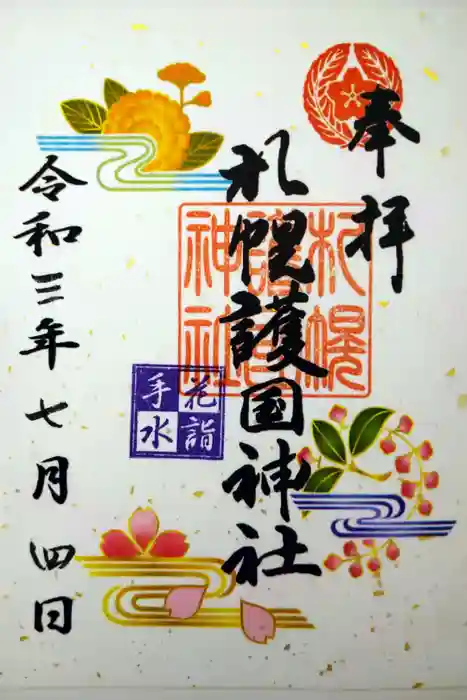 奉拝
札幌護国神社
札幌
護國
神社
花詣
手水
令和三年七月四日